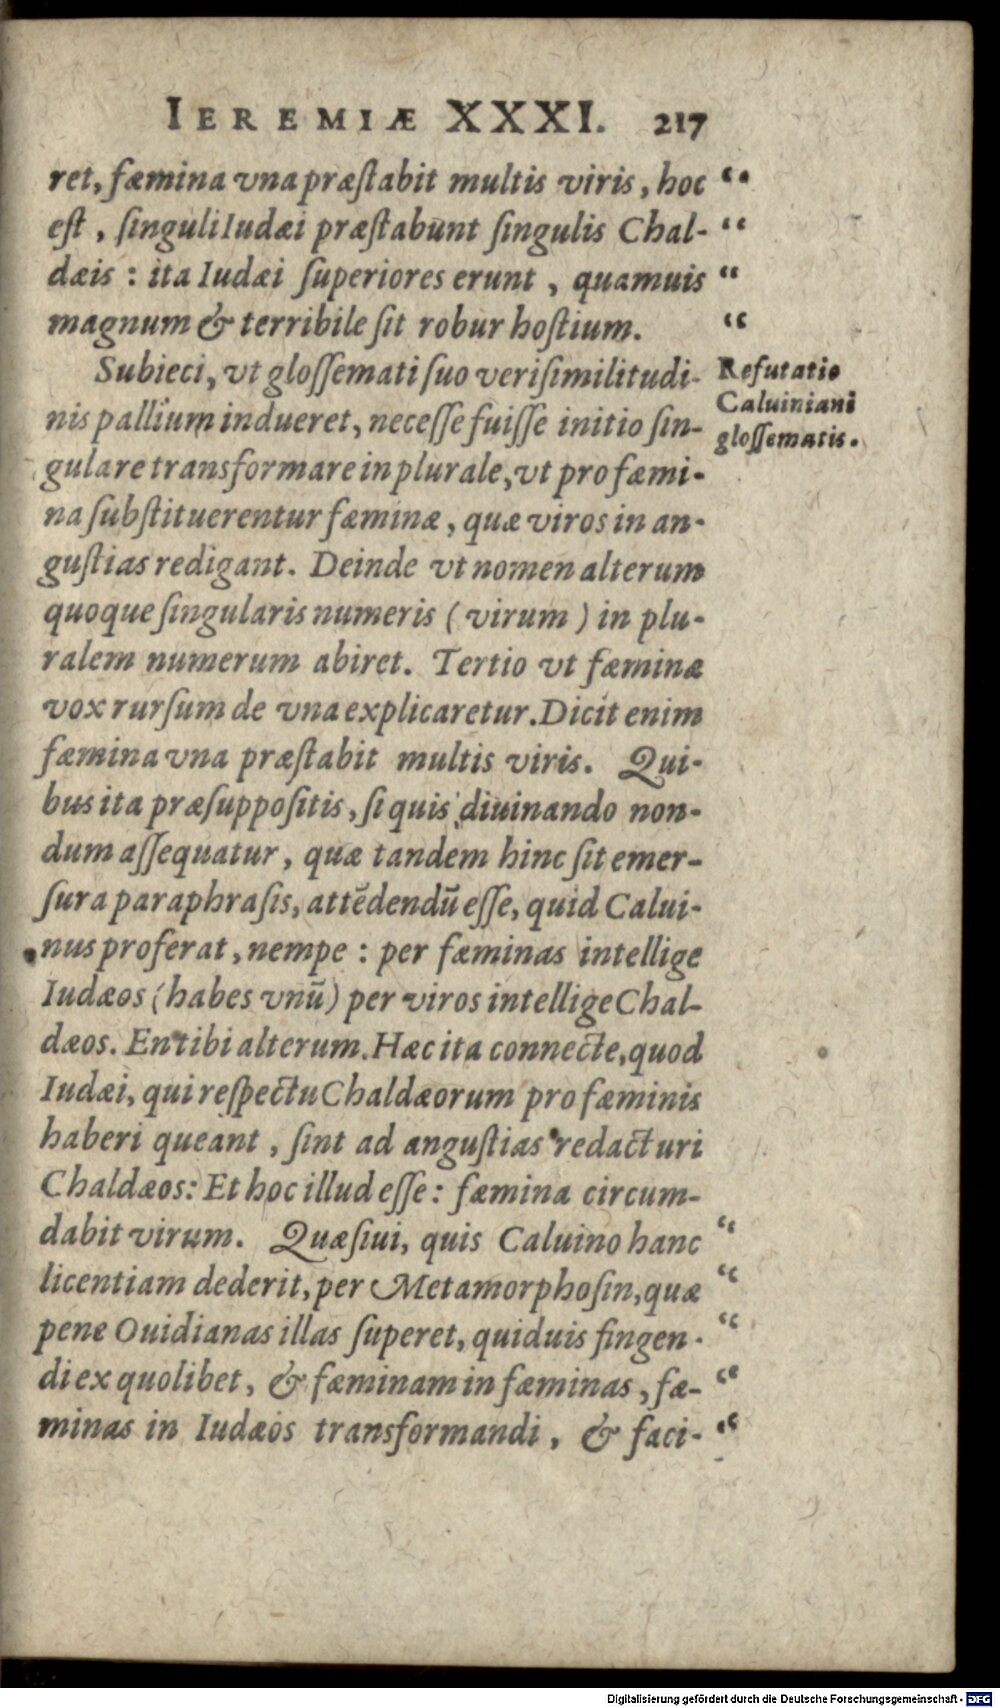 IEREMIÆ XXXI. 217
ret, fæmina vna præſtabit multis viris, hoc “
eſt, ſinguli Iudæi præſtabunt ſingulis Chal- “
dæis: ita Iudæi ſuperiores erunt, quamuis “
magnum & terribile ſit robur hoſtium. “
Subieci, vt gloſſemati ſuo veriſimilitudi-
nis pallium indueret, neceſſe fuiſſe initio ſin-
gulare transformare in plurale, vt pro fæmi-
na ſubſtituerentur fæminæ, quæ viros in an-
guſtias redigant. Deinde vt nomen alterum
quoque ſingularis numeris (virum) in plu-
ralem numerum abiret. Tertio vt fæminæ
vox rurſum de vna explicaretur. Dicit enim
fæmina vna præſtabit multis viris. Qui-
bus ita præſuppoſitis, ſi quis diuinando non-
dum aſſequatur, quæ tandem hinc ſit emer-
ſura paraphraſis, attēdendū eſſe, quid Calui-
nus proferat, nempe: per fæminas intellige
Iudæos (habes vnū) per viros intellige Chal-
dæos. En tibi alterum. Hæc ita connecte, quod
Iudæi, qui reſpectu Chaldæorum pro fæminis
haberi queant, ſint ad anguſtias redacturi
Chaldæos: Et hoc illud eſſe: fæmina circum-
dabit virum. Quæſiui, quis Caluino hanc “
licentiam dederit, per Metamorphoſin, quæ “
pene Ouidianas illas ſuperet, quiduis fingen- “
di ex quolibet, & fæminam in fæminas, fæ- “
minas in Iudæos transformandi, & faci- “
Refutatio
Caluiniani
gloſſematis.
Digitalisierung gefördert durch die Deutsche Forschungsgemeinschaft - DFG